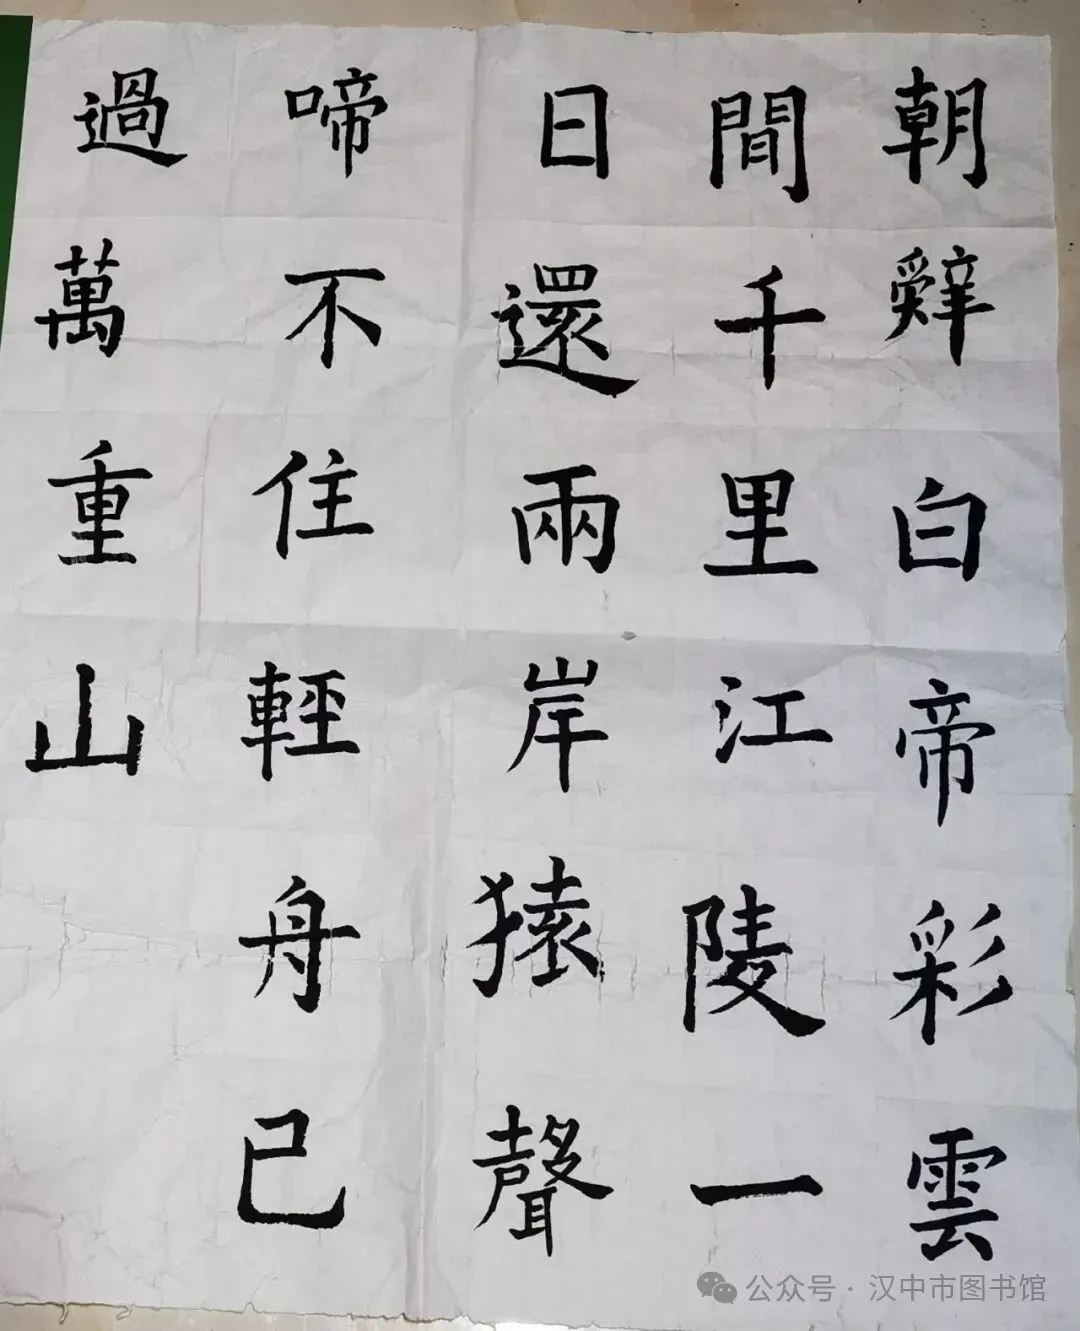 朝辤白帝彩雲
間千里江陵一
日還兩岸猿聲
啼不住輕舟已
過萬重山
公众号·汉中市图书馆